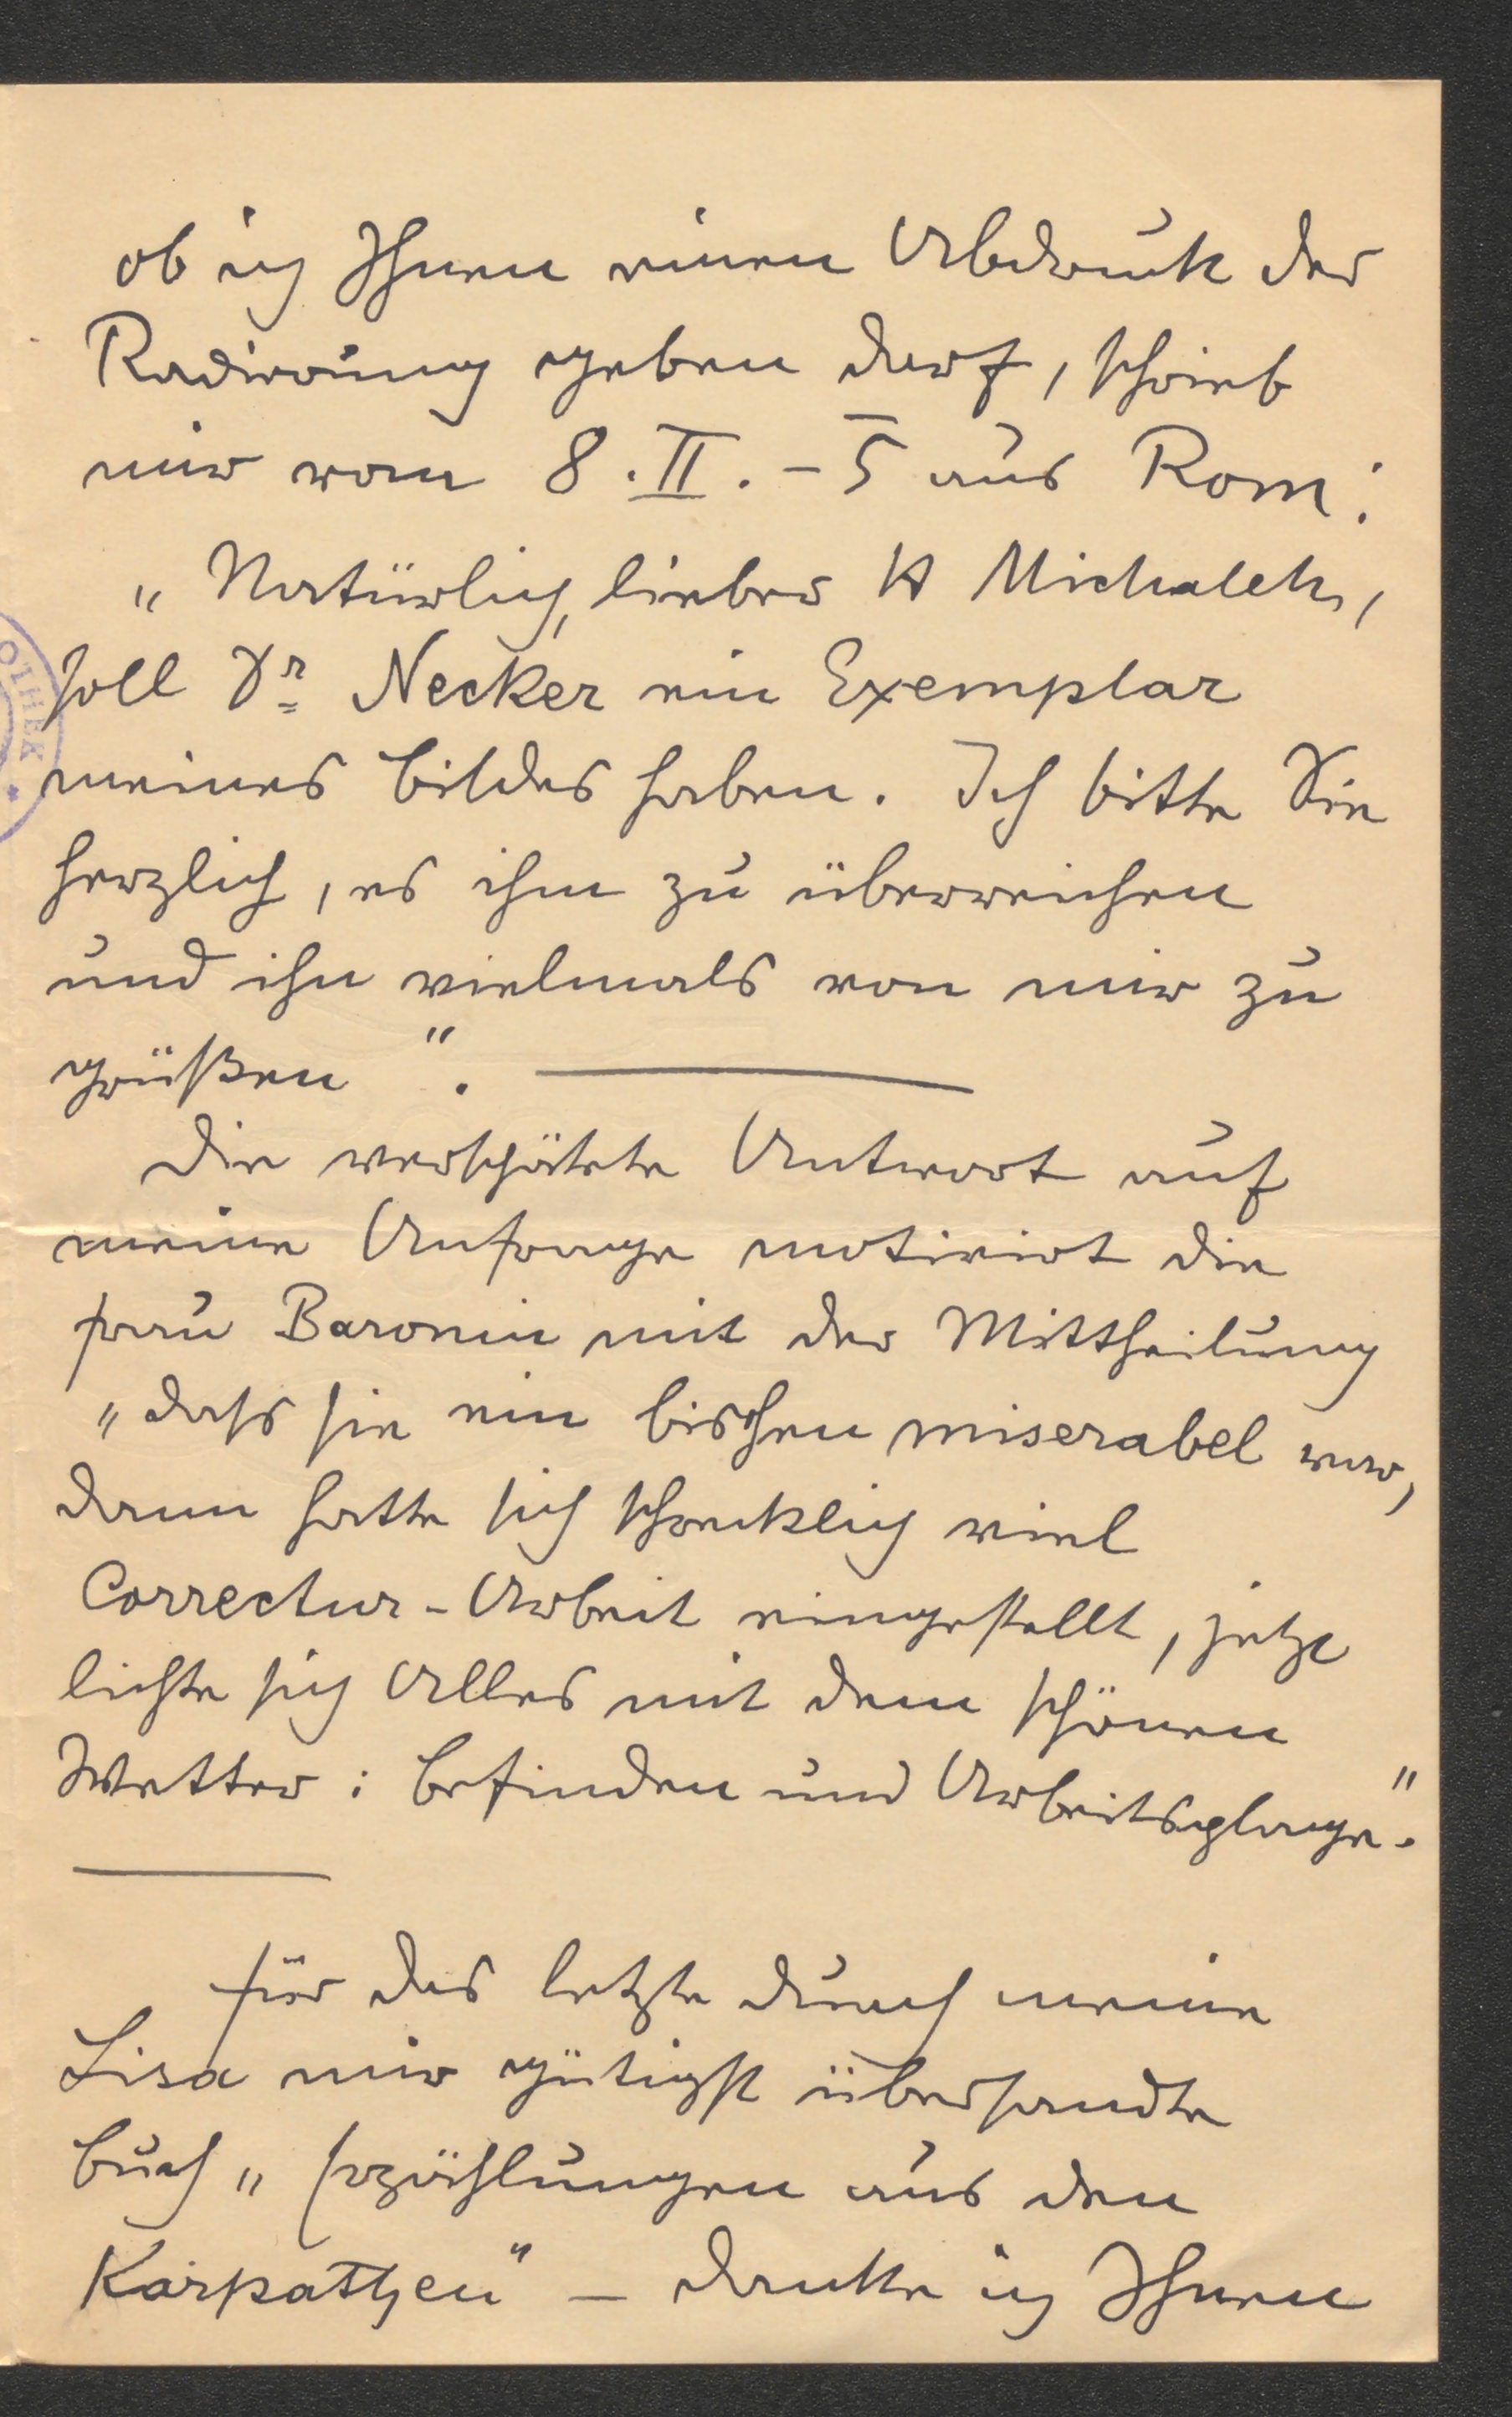 ob ich Ihnen einen Abdruck der
Radirung geben darf, schrieb
mir vom 8. II. – 5 aus Rom:
„Natürlich, lieber H Michalek,
soll Dr Necker ein Exemplar
meines Bildes haben. Ich bitte Sie
herzlich, es ihm zu überreichen
und ihn vielmals von mir zu
grüßen“.
Die verspätete Antwort auf
meine Anfrage motivirt die
Frau Baronin mit der Mittheilung
„dass sie ein bischen miserabel war,
dann hatte sich schrecklich viel
Correctur-Arbeit eingestellt, jetzt
lichte sich Alles mit dem schönen
Wetter: Befinden und Arbeitsplage“.
Für das letzte durch meine
Lisa mir gütigst übersandte
Buch „Erzählungen aus den
Karpathen“ – danke ich Ihnen
OTHEK *